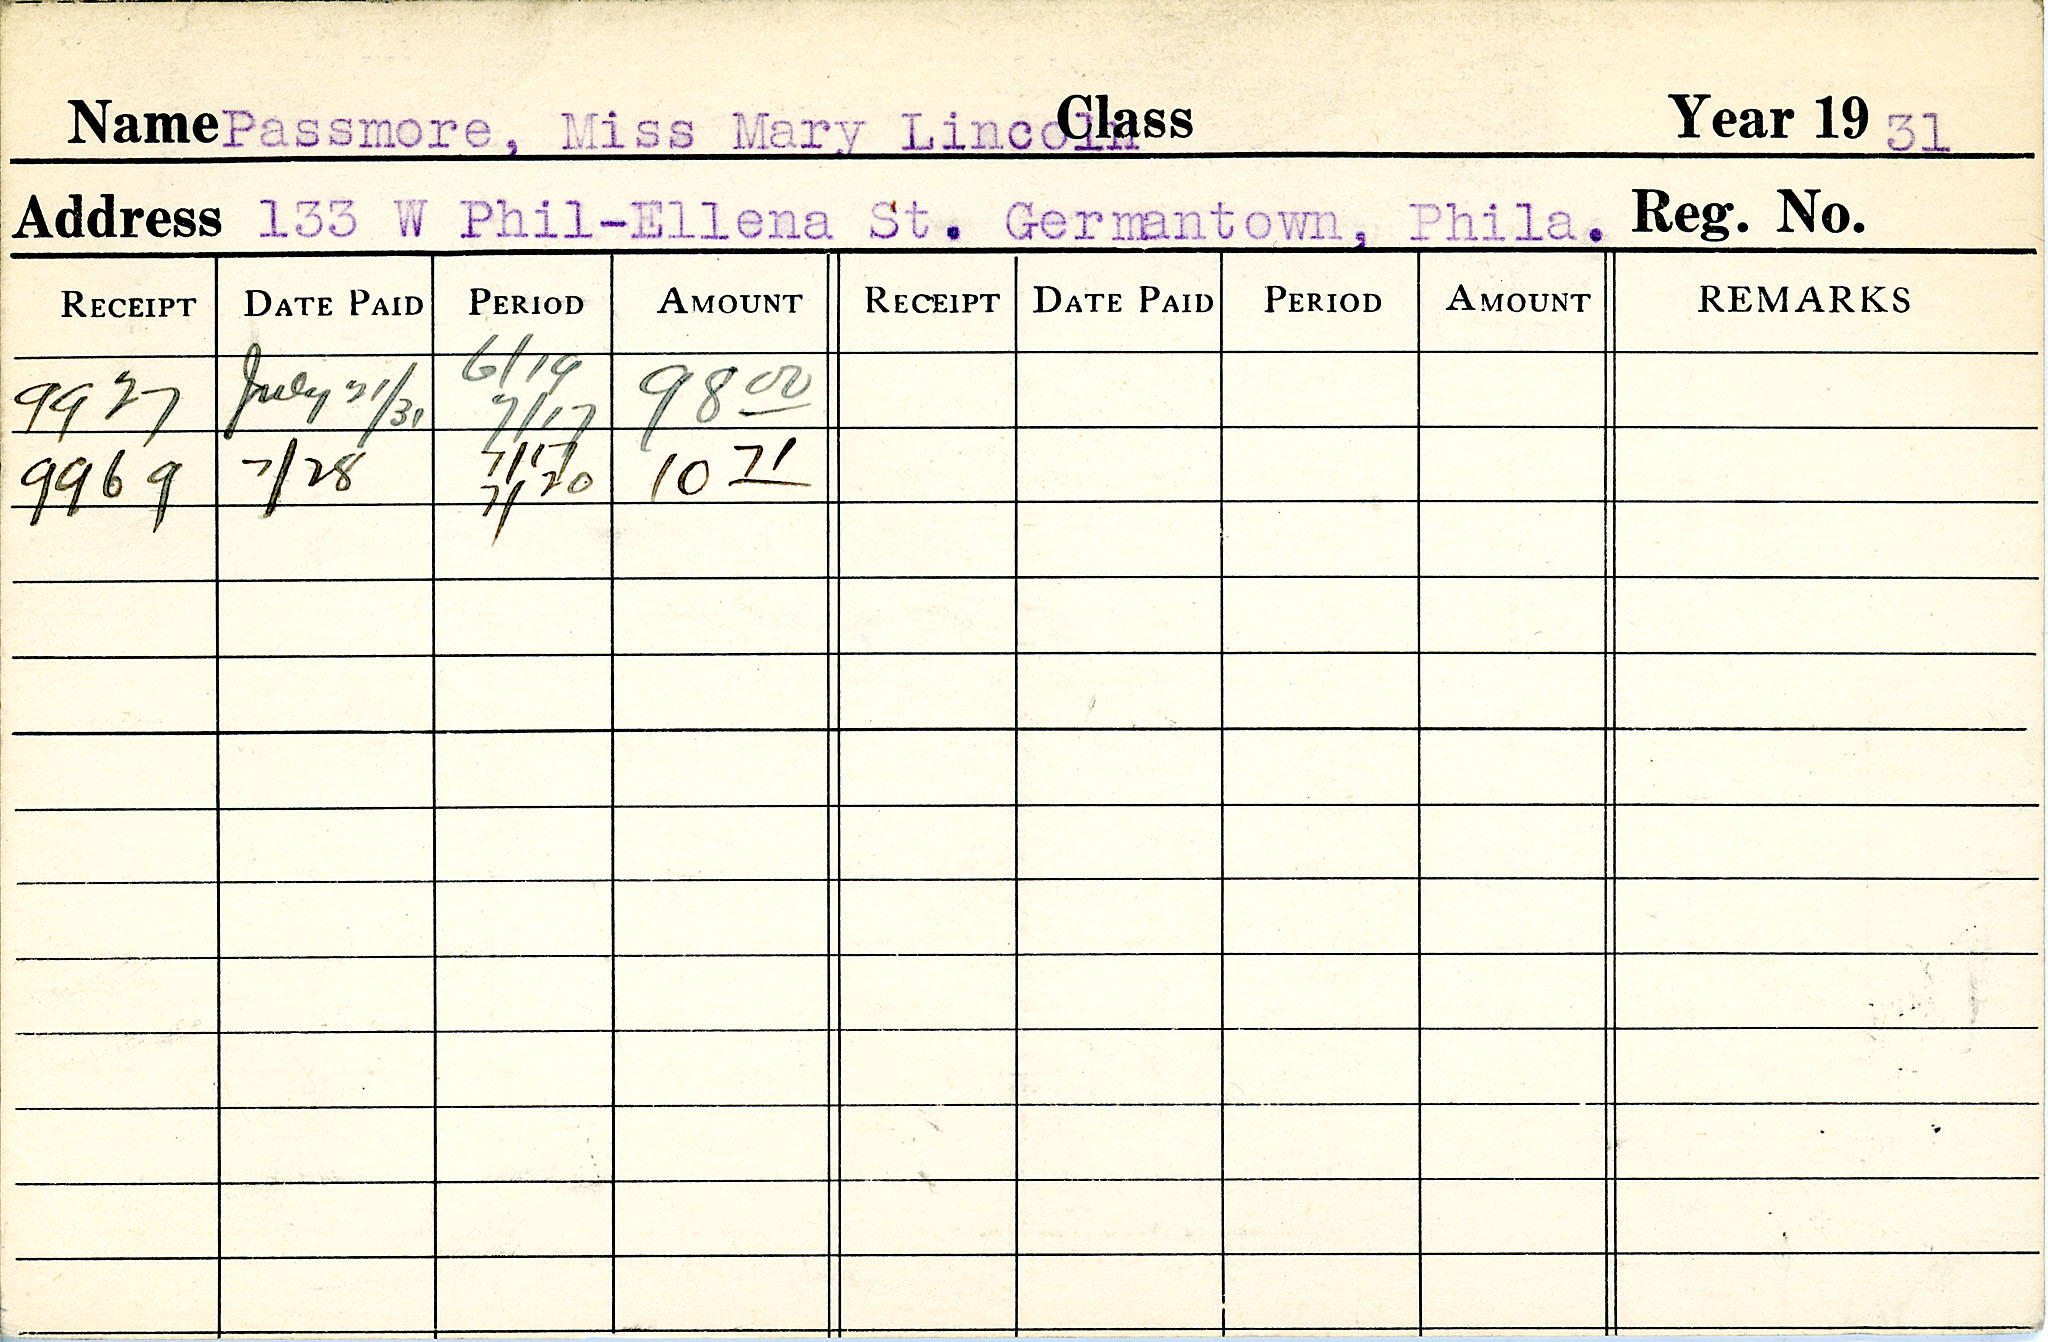 Name Passmore, Miss Mary Lincoln Class Year 19 31
Address 133 W Phil-Ellena St. Germantown, Phila. Reg. No.
RECEIPT DATE PAID PERIOD AMOUNT RECEIPT DATE PAID PERIOD AMOUNT REMARKS
6/19
9927 July 21/31 98 00
7/17
7/17
9969 7/28 10 71
7/20